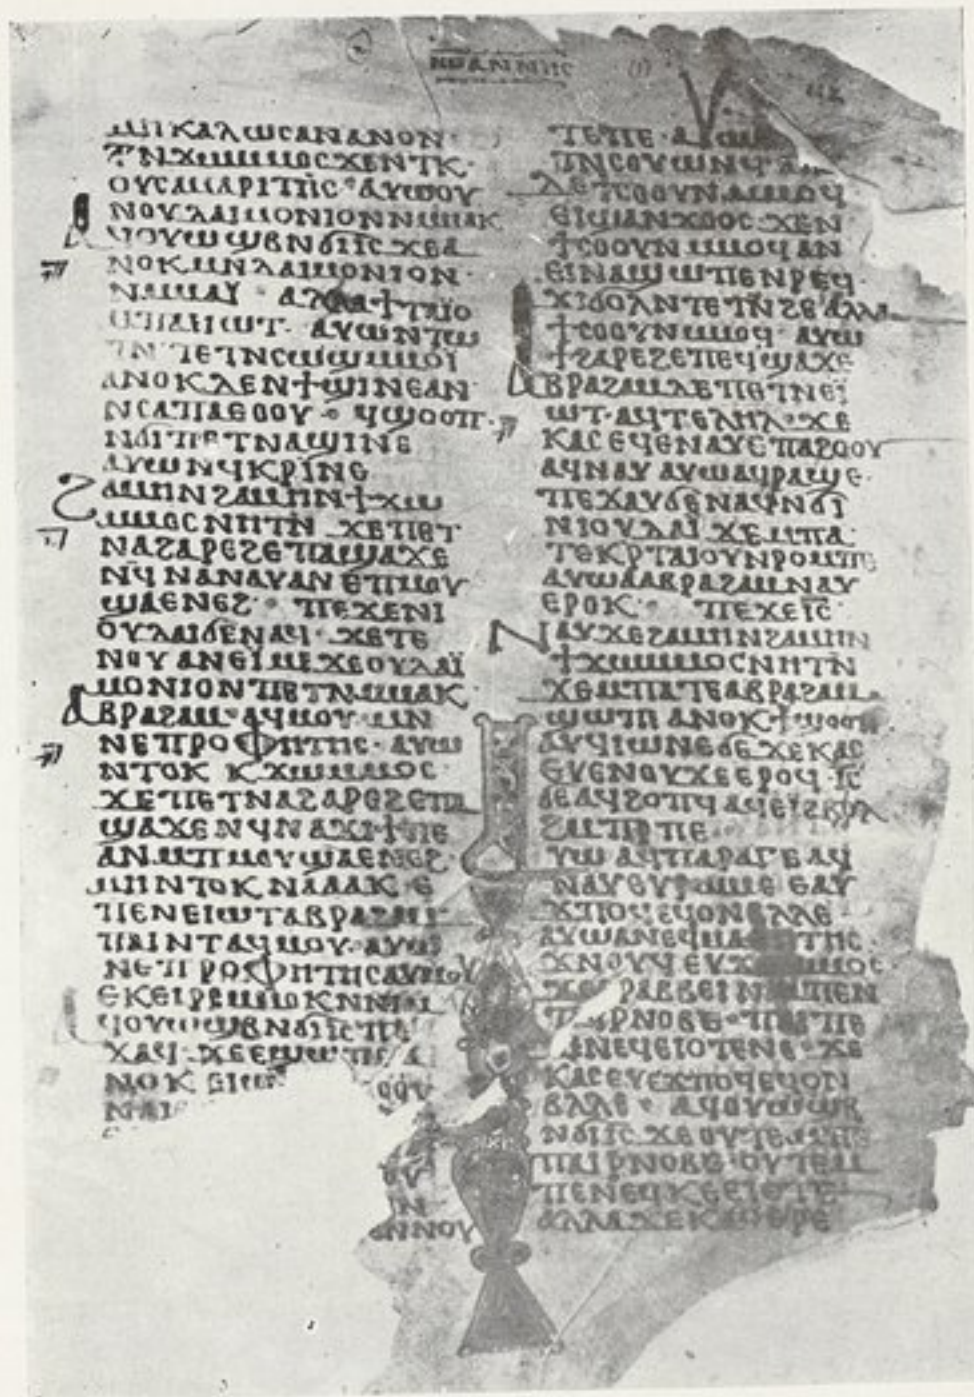 ⲓⲱⲁⲛⲛⲏⲥ
ⲙⲏ ⲕⲁⲗⲱⲥ ⲁⲛ ⲁⲛⲟⲛ
ⲧⲛϫⲱ ⲙⲙⲟⲥ ϫⲉ ⲛⲧⲕ
ⲟⲩⲥⲁⲙⲁⲣⲓⲧⲏⲥ · ⲁⲩⲱ ⲟⲩ
ⲛⲟⲩⲇⲁⲓⲙⲟⲛⲓⲟⲛ ⲛⲙⲙⲁⲕ
ⲁϥⲟⲩⲱϣⲃ ⲛϭⲓ ⲓⲥ ϫⲉ ⲁ
ⲛⲟⲕ ⲙⲛ ⲇⲁⲓⲙⲟⲛⲓⲟⲛ
ⲛⲙⲙⲁⲓ̈ · ⲁⲗⲗⲁ ϯⲧⲁⲓ̈ⲟ
ⲙⲡⲁⲉⲓⲱⲧ · ⲁⲩⲱ ⲛⲧⲱ
ⲧⲛ ⲧⲉⲧⲛⲥⲱϣ ⲙⲙⲟⲓ̈
ⲁⲛⲟⲕ ⲇⲉ ⲛϯϣⲓⲛⲉ ⲁⲛ
ⲛⲥⲁ ⲡⲁⲉⲟⲟⲩ · ϥϣⲟⲟⲡ ·
ⲛϭⲓ ⲡⲉⲧⲛⲁϣⲓⲛⲉ
ⲁⲩⲱ ⲛϥⲕⲣⲓⲛⲉ
ϩⲁⲙⲏⲛ ϩⲁⲙⲏⲛ ϯϫⲱ
ⲙⲙⲟⲥ ⲛⲏⲧⲛ ϫⲉ ⲡⲉⲧ
ⲛⲁϩⲁⲣⲉϩ ⲉⲡⲁϣⲁϫⲉ
ⲛϥⲛⲁⲛⲁⲩ ⲁⲛ ⲉⲡⲙⲟⲩ
ϣⲁⲉⲛⲉϩ · ⲡⲉϫⲉ ⲛⲓ
ⲟⲩⲇⲁⲓ ϭⲉ ⲛⲁϥ · ϫⲉ ⲧⲉ
ⲛⲟⲩ ⲁⲛⲉⲓⲙⲉ ϫⲉ ⲟⲩⲇⲁⲓ̈
ⲙⲟⲛⲓⲟⲛ ⲡⲉⲧⲛⲙⲙⲁⲕ
ⲁⲃⲣⲁϩⲁⲙ · ⲁϥⲙⲟⲩ ⲙⲛ
ⲛⲉⲡⲣⲟⲫⲏⲧⲏⲥ · ⲁⲩⲱ
ⲛⲧⲟⲕ ⲕϫⲱ ⲙⲙⲟⲥ
ϫⲉ ⲡⲉⲧⲛⲁϩⲁⲣⲉϩ ⲉⲡⲁ
ϣⲁϫⲉ ⲛϥⲛⲁϫⲓϯⲡⲉ
ⲁⲛ ⲙⲡⲙⲟⲩ ϣⲁⲉⲛⲉϩ ·
ⲙⲏ ⲛⲧⲟⲕ ⲛⲁⲁⲁⲕ ⲉ
ⲡⲉⲛⲉⲓⲱⲧ ⲁⲃⲣⲁϩⲁⲙ
ⲡⲁⲓ ⲛⲧⲁϥⲙⲟⲩ · ⲁⲩⲱ
ⲛⲉⲡⲣⲟⲫⲏⲧⲏⲥ ⲁⲩⲙⲟⲩ
ⲉⲕⲉⲓⲣⲉ ⲙⲙⲟⲕ ⲛⲛⲓⲙ
ⲁϥⲟⲩⲱϣⲃ ⲛϭⲓ ⲓⲥ ⲡⲉ
ϫⲁϥ · ϫⲉ ⲉϣⲱⲡⲉ ⲁ
ⲛⲟⲕ ⲉⲓϣ
ⲧⲉⲡⲉ · ⲁⲩⲱ
ⲡⲛⲥⲟⲩⲱⲛϥ
ⲇⲉ ϯⲥⲟⲟⲩⲛ ⲙⲙⲟϥ
ⲉⲓϣⲁⲛϫⲟⲟⲥ ϫⲉ ⲛ
ϯⲥⲟⲟⲩⲛ ⲙⲙⲟϥ ⲁⲛ
ⲉⲓⲛⲁϣⲱⲡⲉ ⲛⲣⲉϥ
ϫⲓϭⲟⲗ ⲛⲧⲉⲧⲛϩⲉ ⲁⲗⲗⲁ
ϯⲥⲟⲟⲩⲛ ⲙⲙⲟϥ · ⲁⲩⲱ
ϯϩⲁⲣⲉϩ ⲉⲡⲉϥϣⲁϫⲉ
ⲁⲃⲣⲁϩⲁⲙ ⲇⲉ ⲡⲉⲧⲛⲉⲓ̈
ⲱⲧ · ⲁϥⲧⲉⲗⲏⲗ · ϫⲉ
ⲕⲁⲥ ⲉϥⲉⲛⲁⲩ ⲉⲡⲁϩⲟⲟⲩ
ⲁϥⲛⲁⲩ ⲁⲩⲱ ⲁϥⲣⲁϣⲉ ·
ⲡⲉϫⲁⲩ ϭⲉ ⲛⲁϥ ⲛϭⲓ
ⲛⲓⲟⲩⲇⲁⲓ ϫⲉ ⲙⲡⲁ
ⲧⲉⲕⲣⲧⲁⲓⲟⲩ ⲛⲣⲟⲙⲡⲉ
ⲁⲩⲱ ⲁⲁⲃⲣⲁϩⲁⲙ ⲛⲁⲩ
ⲉⲣⲟⲕ · ⲡⲉϫⲉ ⲓⲥ
ⲛⲁⲩ ϫⲉ ϩⲁⲙⲏⲛ ϩⲁⲙⲏⲛ
ϯϫⲱ ⲙⲙⲟⲥ ⲛⲏⲧⲛ
ϫⲉ ⲙⲡⲁⲧⲉ ⲁⲃⲣⲁϩⲁⲙ
ϣⲱⲡⲉ ⲁⲛⲟⲕ ϯϣⲟⲟⲡ
ⲁⲩϥⲓⲱⲛⲉ ϭⲉ ϫⲉⲕⲁⲥ
ⲉⲩⲉⲛⲟⲩϫⲉ ⲉⲣⲟϥ · ⲓⲥ
ⲇⲉ ⲁϥϩⲟⲡϥ ⲁϥⲉⲓ ⲉⲃⲟⲗ
ϩⲙ ⲡⲣⲡⲉ ·
ⲁⲩⲱ ⲁϥⲡⲁⲣⲁⲅⲉ ⲁϥ
ⲛⲁⲩ ⲉⲩⲣⲱⲙⲉ ⲉⲁⲩ
ϫⲡⲟϥ ⲉϥⲟ ⲛⲃⲗⲗⲉ ·
ⲁⲩⲱ ⲁⲛⲉϥⲙⲁⲑⲏⲧⲏⲥ ·
ϫⲛⲟⲩϥ ⲉⲩϫⲱ ⲙⲙⲟⲥ
ϫⲉ ϩⲣⲁⲃⲃⲉⲓ ⲛⲓⲙ ⲡⲉⲛ
ⲧⲁϥⲣⲛⲟⲃⲉ · ⲡⲁⲓ ⲡⲉ
ϫⲛ ⲛⲉϥⲉⲓⲟⲧⲉ ⲛⲉ · ϫⲉ
ⲕⲁⲥ ⲉⲩⲉϫⲡⲟϥ ⲉϥⲟ ⲛ
ⲃⲗⲗⲉ · ⲁϥⲟⲩⲱϣⲃ
ⲛϭⲓ ⲓⲥ ϫⲉ ⲟⲩⲧⲉ ⲙⲡⲉ
ⲡⲁⲓ ⲣⲛⲟⲃⲉ · ⲟⲩⲧⲉ ⲙ
ⲡⲉ ⲛⲉϥⲕⲉⲉⲓⲟⲧⲉ
ⲁⲗⲗⲁ ϫⲉⲕⲁⲥ ⲉⲣⲉ